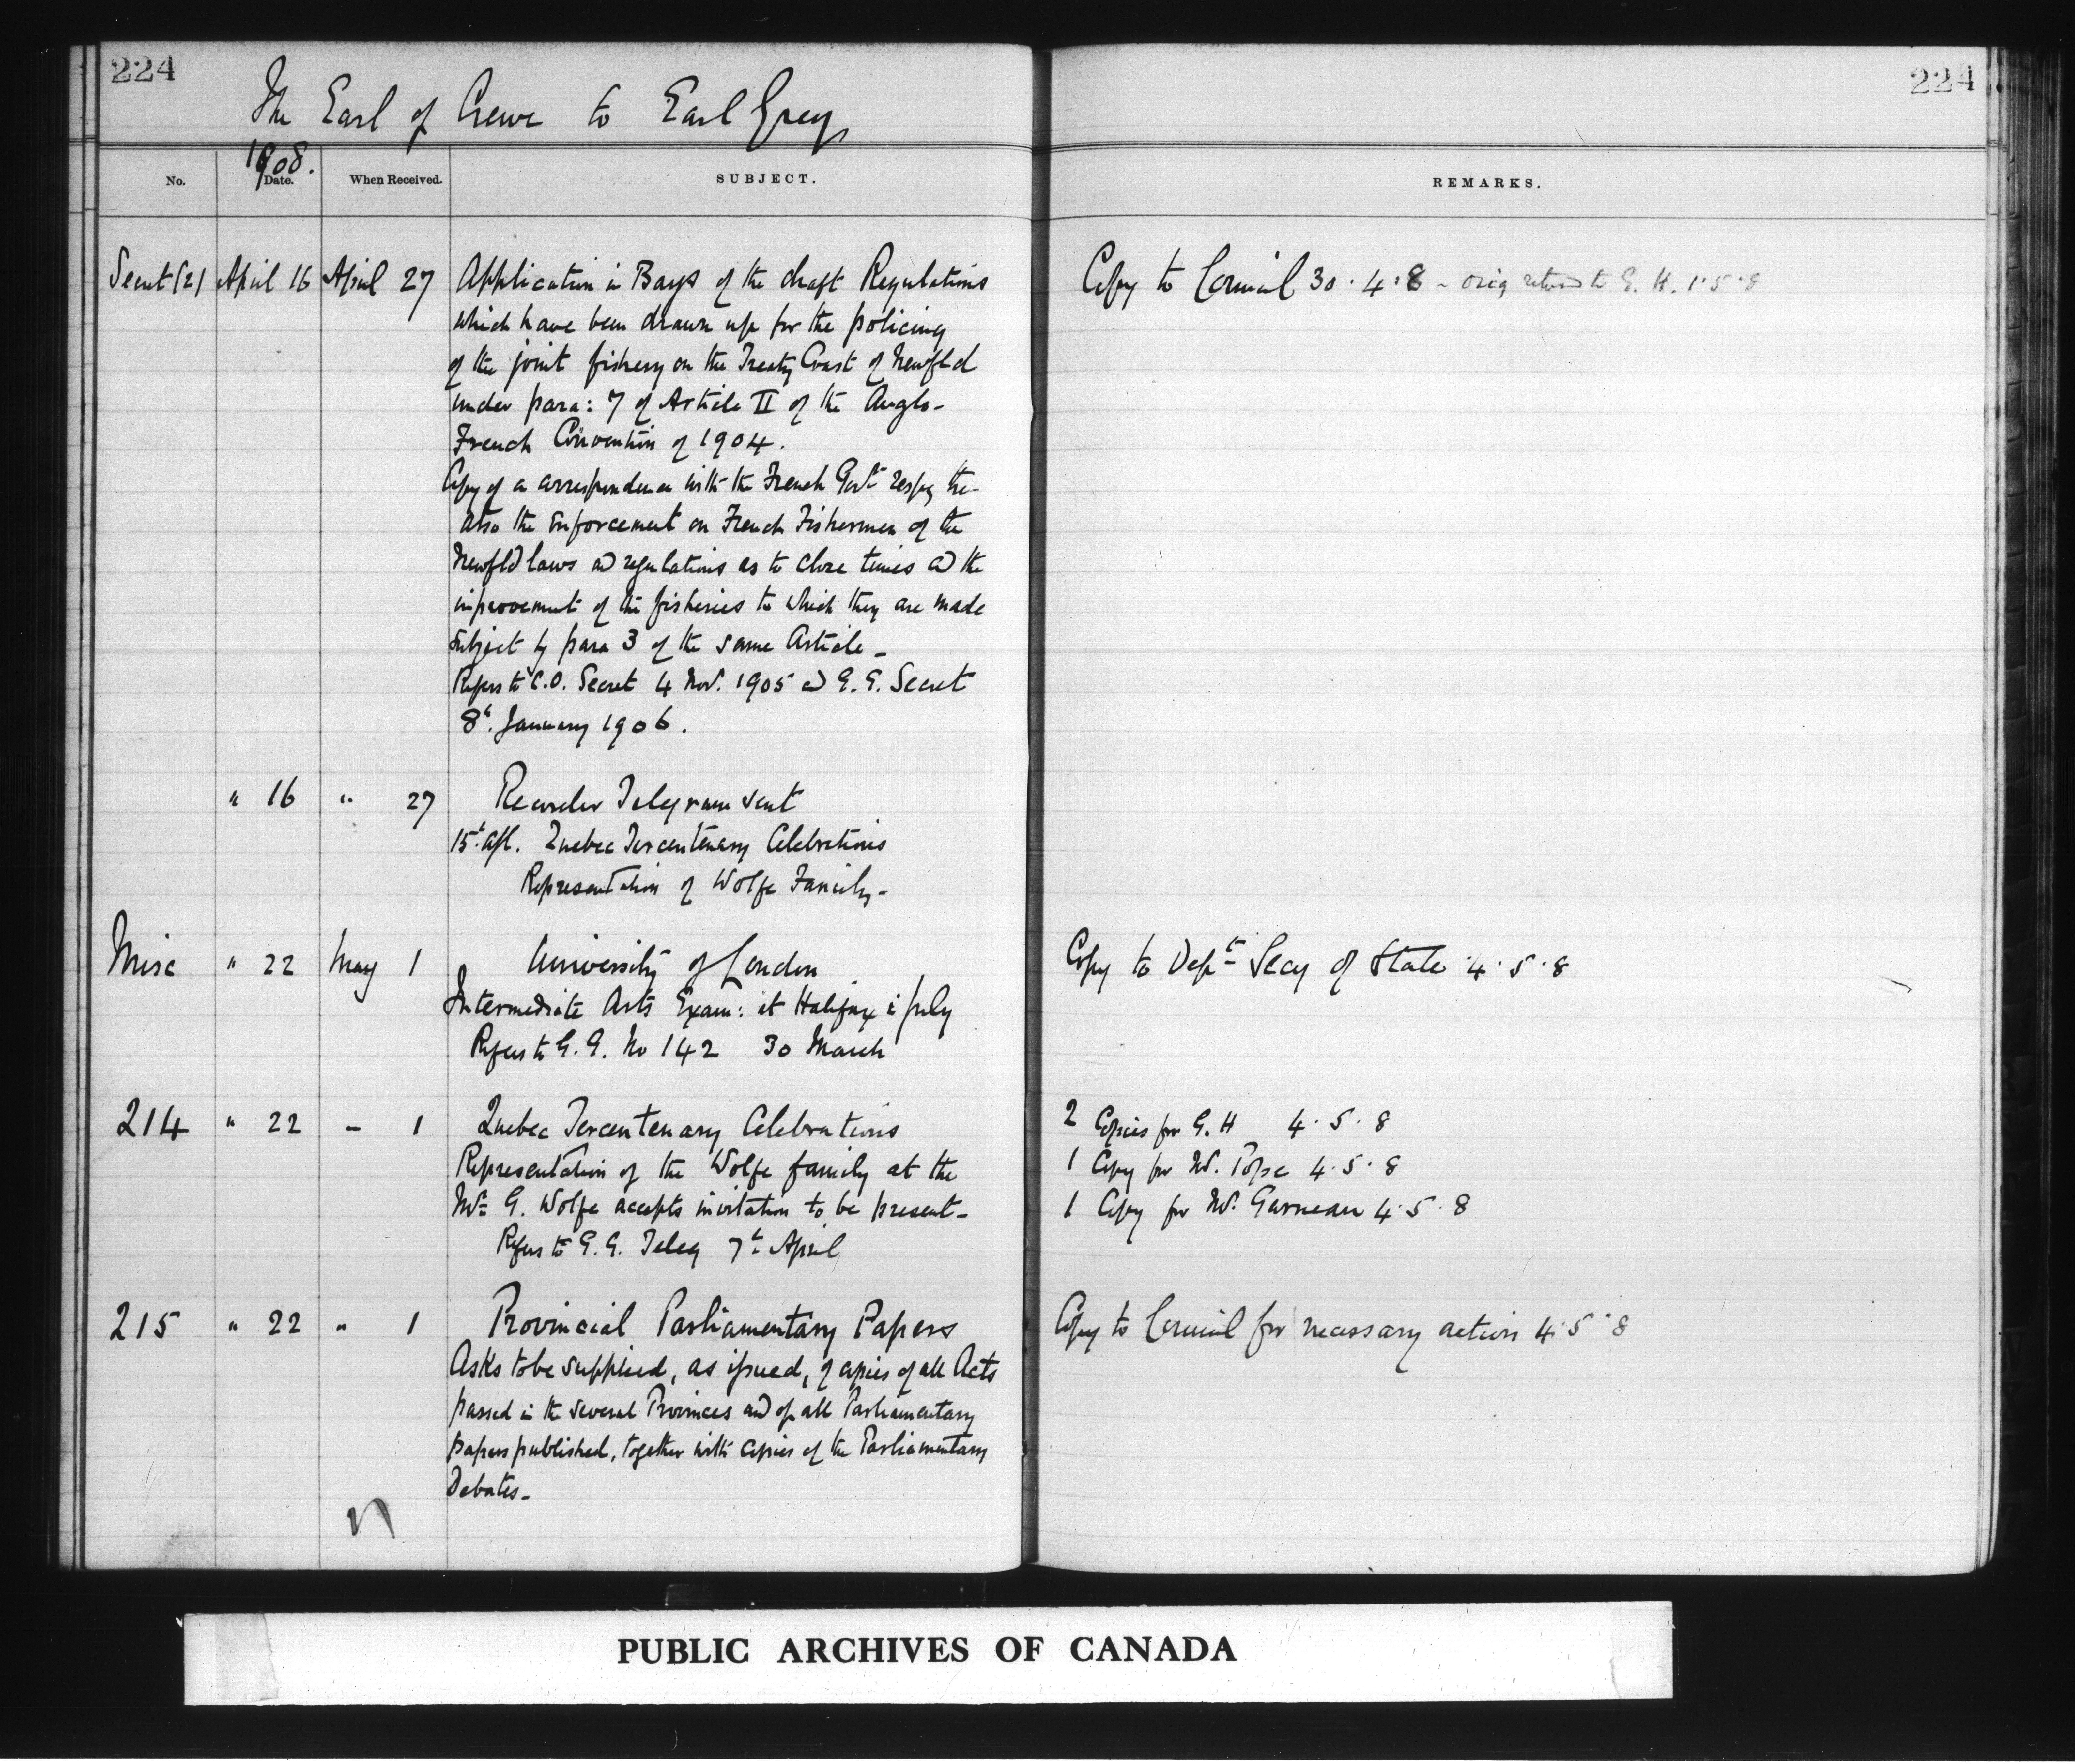 224
224
The Earl of Crewe to Earl Grey
1908.
No.
Date.
When Received.
SUBJECT.
REMARKS.
Secret (2) April 16 April 27 Application in Bays of the draft Regulations
Copy to Council 30.4.8 - orig returned to G. H. 1.5.8
which have been drawn up for the policing
of the joint fishery on the Treaty Coast of Newfld
under para: 7 of Article II of the Anglo-
French Convention of 1904.
Copy of a correspondence with the French Govt respg the-
also the enforcement on French Fishermen of the
Newfld laws and regulations as to close times and the
improvement of the fisheries to which they are made
subject by para 3 of the same Article -
Refers to C.O. Secret 4 Nov. 1905 and G. G. Secret
8th. January 1906.
" 16 " 27 Recorder Telegram sent
15th. Apl. Quebec Tercentenary Celebrations
Representation of Wolfe Family -
Misc " 22 May 1 University of London
Copy to Dept Secy of State 4.5.8
Intermediate Arts Exam: at Halifax in July
Refers to G. G. No 142 30 March
214 " 22 - 1 Quebec Tercentenary Celebrations
2 Copies for G. H 4.5.8
Representation of the Wolfe family at the
1 Copy for Mr. Pope 4.5.8
Mr G. Wolfe accepts invitation to be present -
1 Copy for Mr. Garneau 4.5.8
Refers to G. G. Teleg 7th April
215 " 22 " 1 Provincial Parliamentary Papers
Copy to Council for necessary action 4.5.8
Asks to be supplied, as issued, of copies of all Acts
passed in the several Provinces and of all Parliamentary
papers published, together with copies of the Parliamentary
Debates -
PUBLIC ARCHIVES OF CANADA